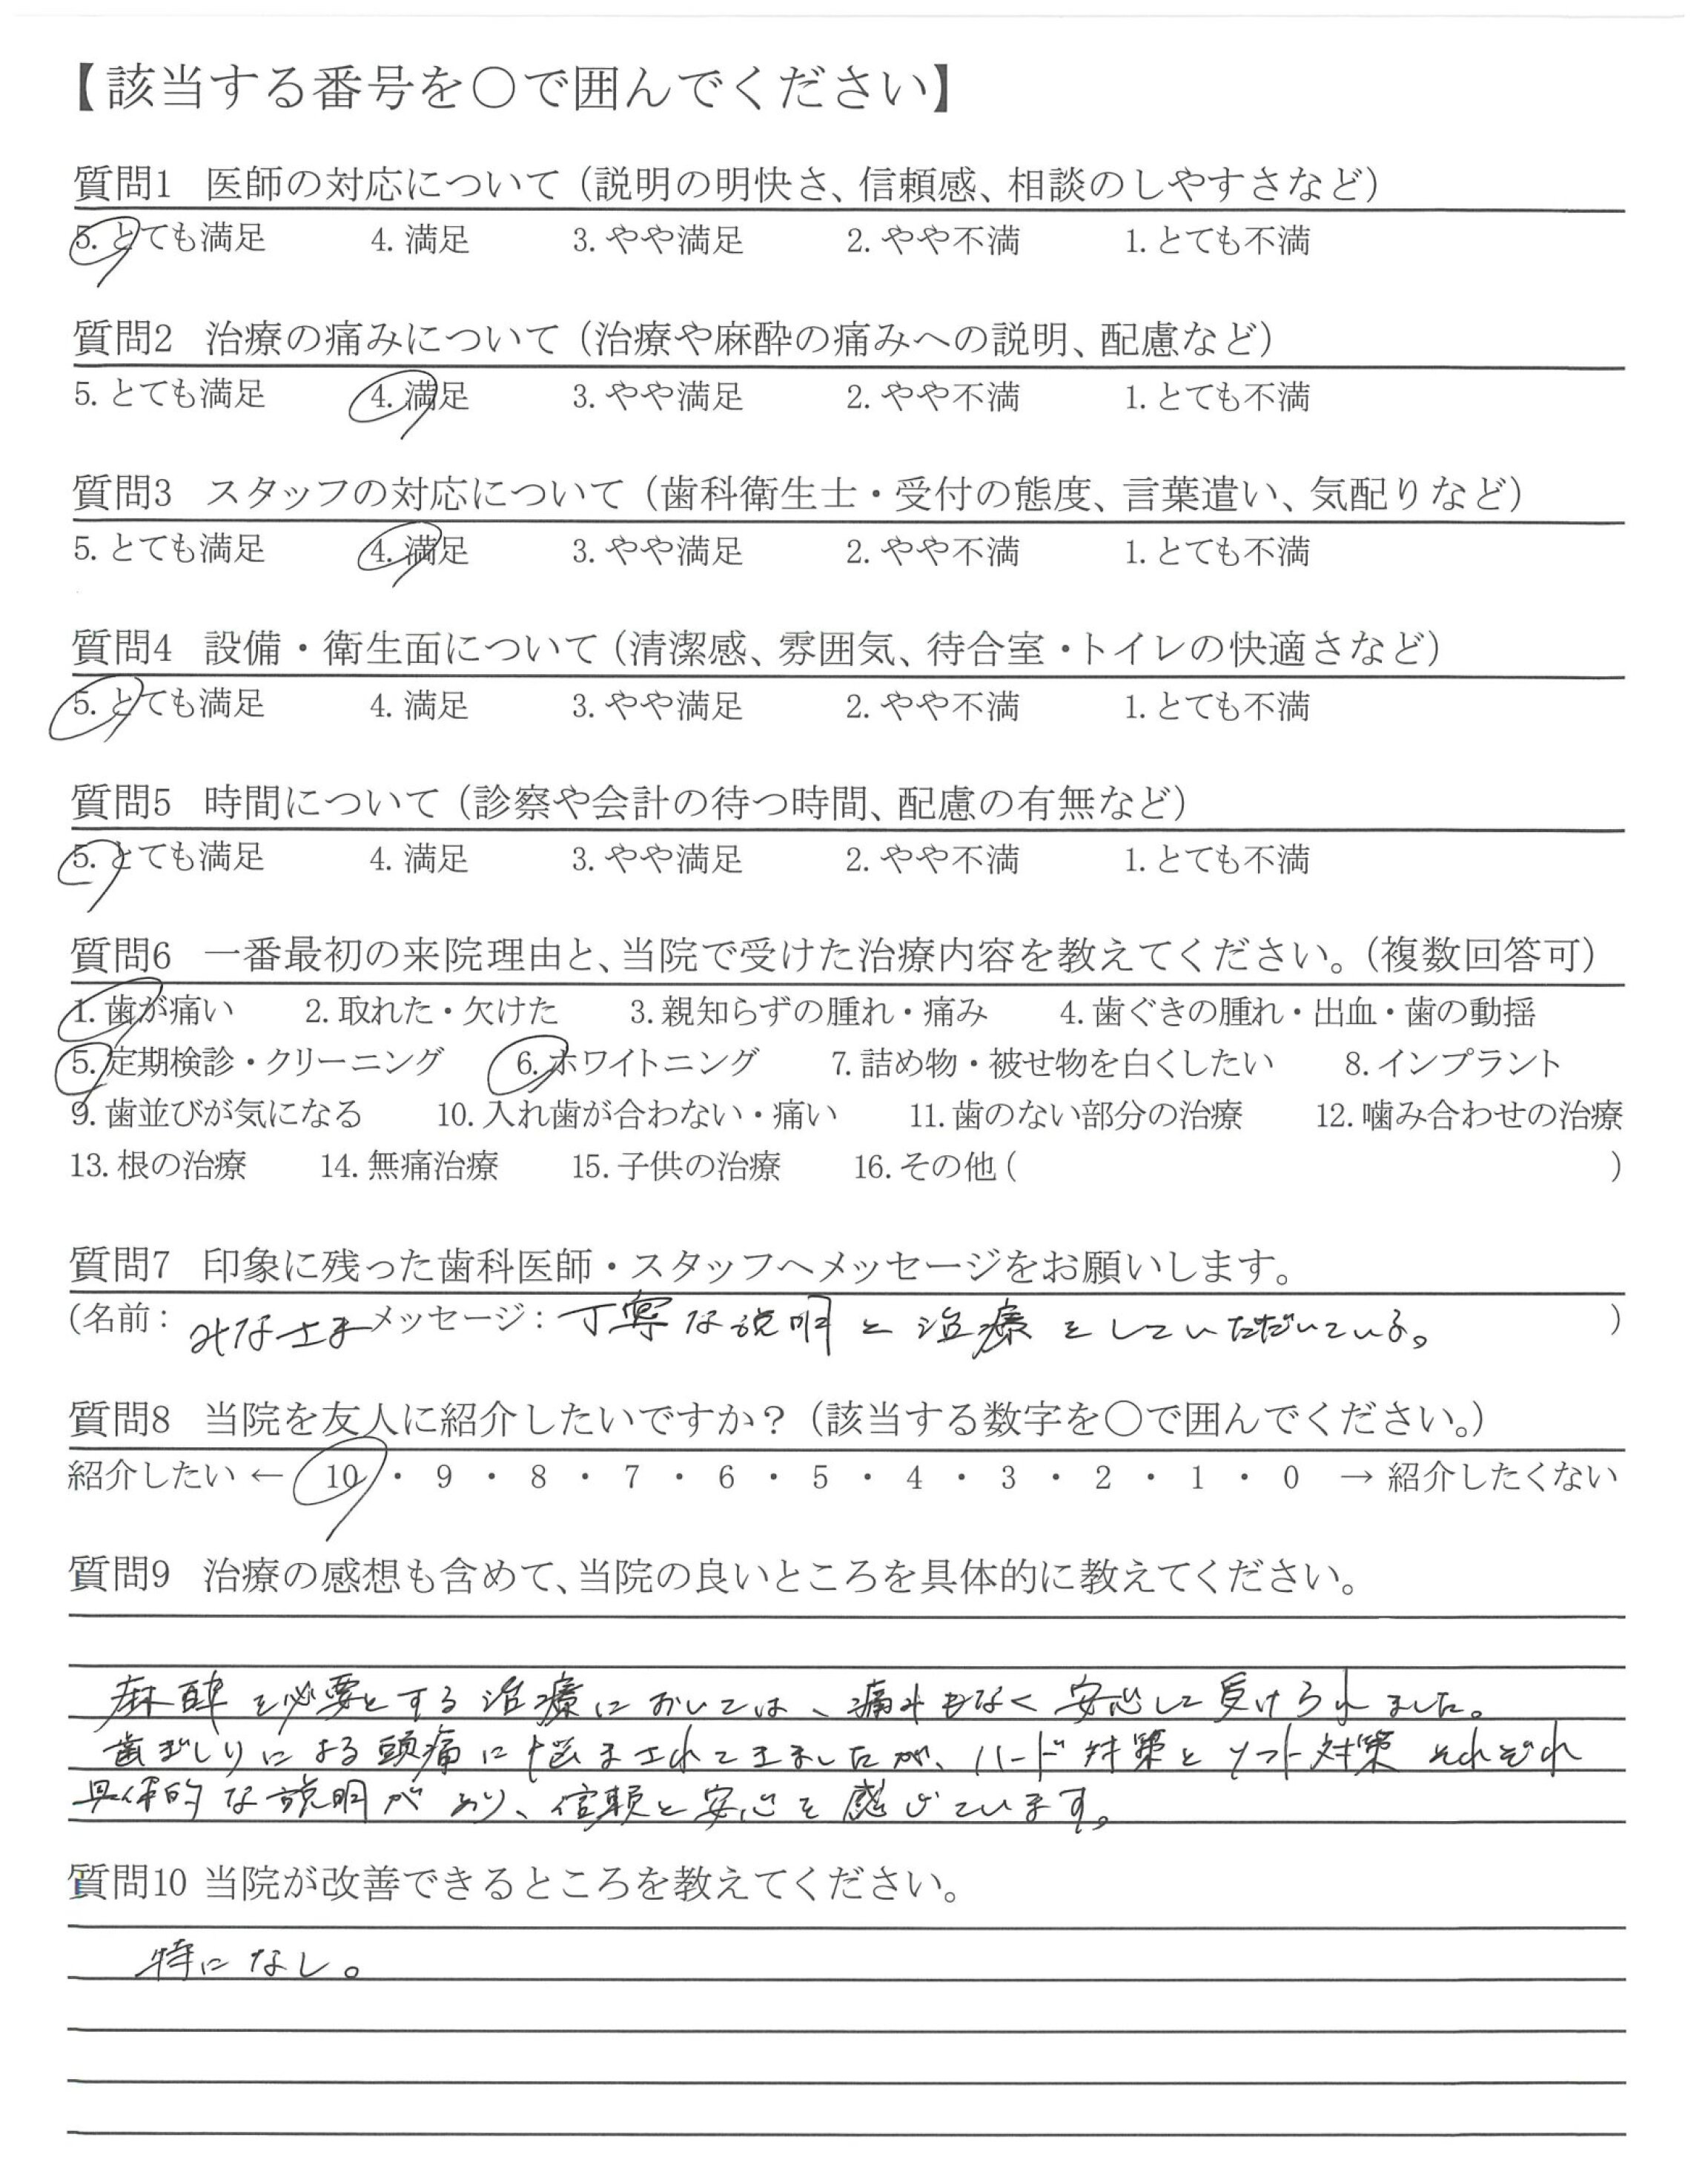 【該当する番号を○で囲んでください】
質問1 医師の対応について（説明の明快さ、信頼感、相談のしやすさなど）
5. とても満足 4. 満足 3. やや満足 2. やや不満 1. とても不満
質問2 治療の痛みについて（治療や麻酔の痛みへの説明、配慮など）
5. とても満足 4. 満足 3. やや満足 2. やや不満 1. とても不満
質問3 スタッフの対応について（歯科衛生士・受付の態度、言葉遣い、気配りなど）
5. とても満足 4. 満足 3. やや満足 2. やや不満 1. とても不満
質問4 設備・衛生面について（清潔感、雰囲気、待合室・トイレの快適さなど）
5. とても満足 4. 満足 3. やや満足 2. やや不満 1. とても不満
質問5 時間について（診察や会計の待つ時間、配慮の有無など）
5. とても満足 4. 満足 3. やや満足 2. やや不満 1. とても不満
質問6 一番最初の来院理由と、当院で受けた治療内容を教えてください。（複数回答可）
1. 歯が痛い 2. 取れた・欠けた 3. 親知らずの腫れ・痛み 4. 歯ぐきの腫れ・出血・歯の動揺
5. 定期検診・クリーニング 6. ホワイトニング 7. 詰め物・被せ物を白くしたい 8. インプラント
9. 歯並びが気になる 10. 入れ歯が合わない・痛い 11. 歯のない部分の治療 12. 噛み合わせの治療
13. 根の治療 14. 無痛治療 15. 子供の治療 16. その他（ ）
質問7 印象に残った歯科医師・スタッフへメッセージをお願いします。
（名前：みなさま メッセージ：丁寧な説明と治療をしていただいている。）
質問8 当院を友人に紹介したいですか？（該当する数字を○で囲んでください。）
紹介したい ← 10 ・ 9 ・ 8 ・ 7 ・ 6 ・ 5 ・ 4 ・ 3 ・ 2 ・ 1 ・ 0 → 紹介したくない
質問9 治療の感想も含めて、当院の良いところを具体的に教えてください。
麻酔を必要とする治療においては、痛みもなく安心して受けられました。
歯ぎしりによる頭痛に悩まされてきましたが、ハード対策とソフト対策それぞれ
具体的な説明があり、信頼と安心を感じています。
質問10 当院が改善できるところを教えてください。
特になし。